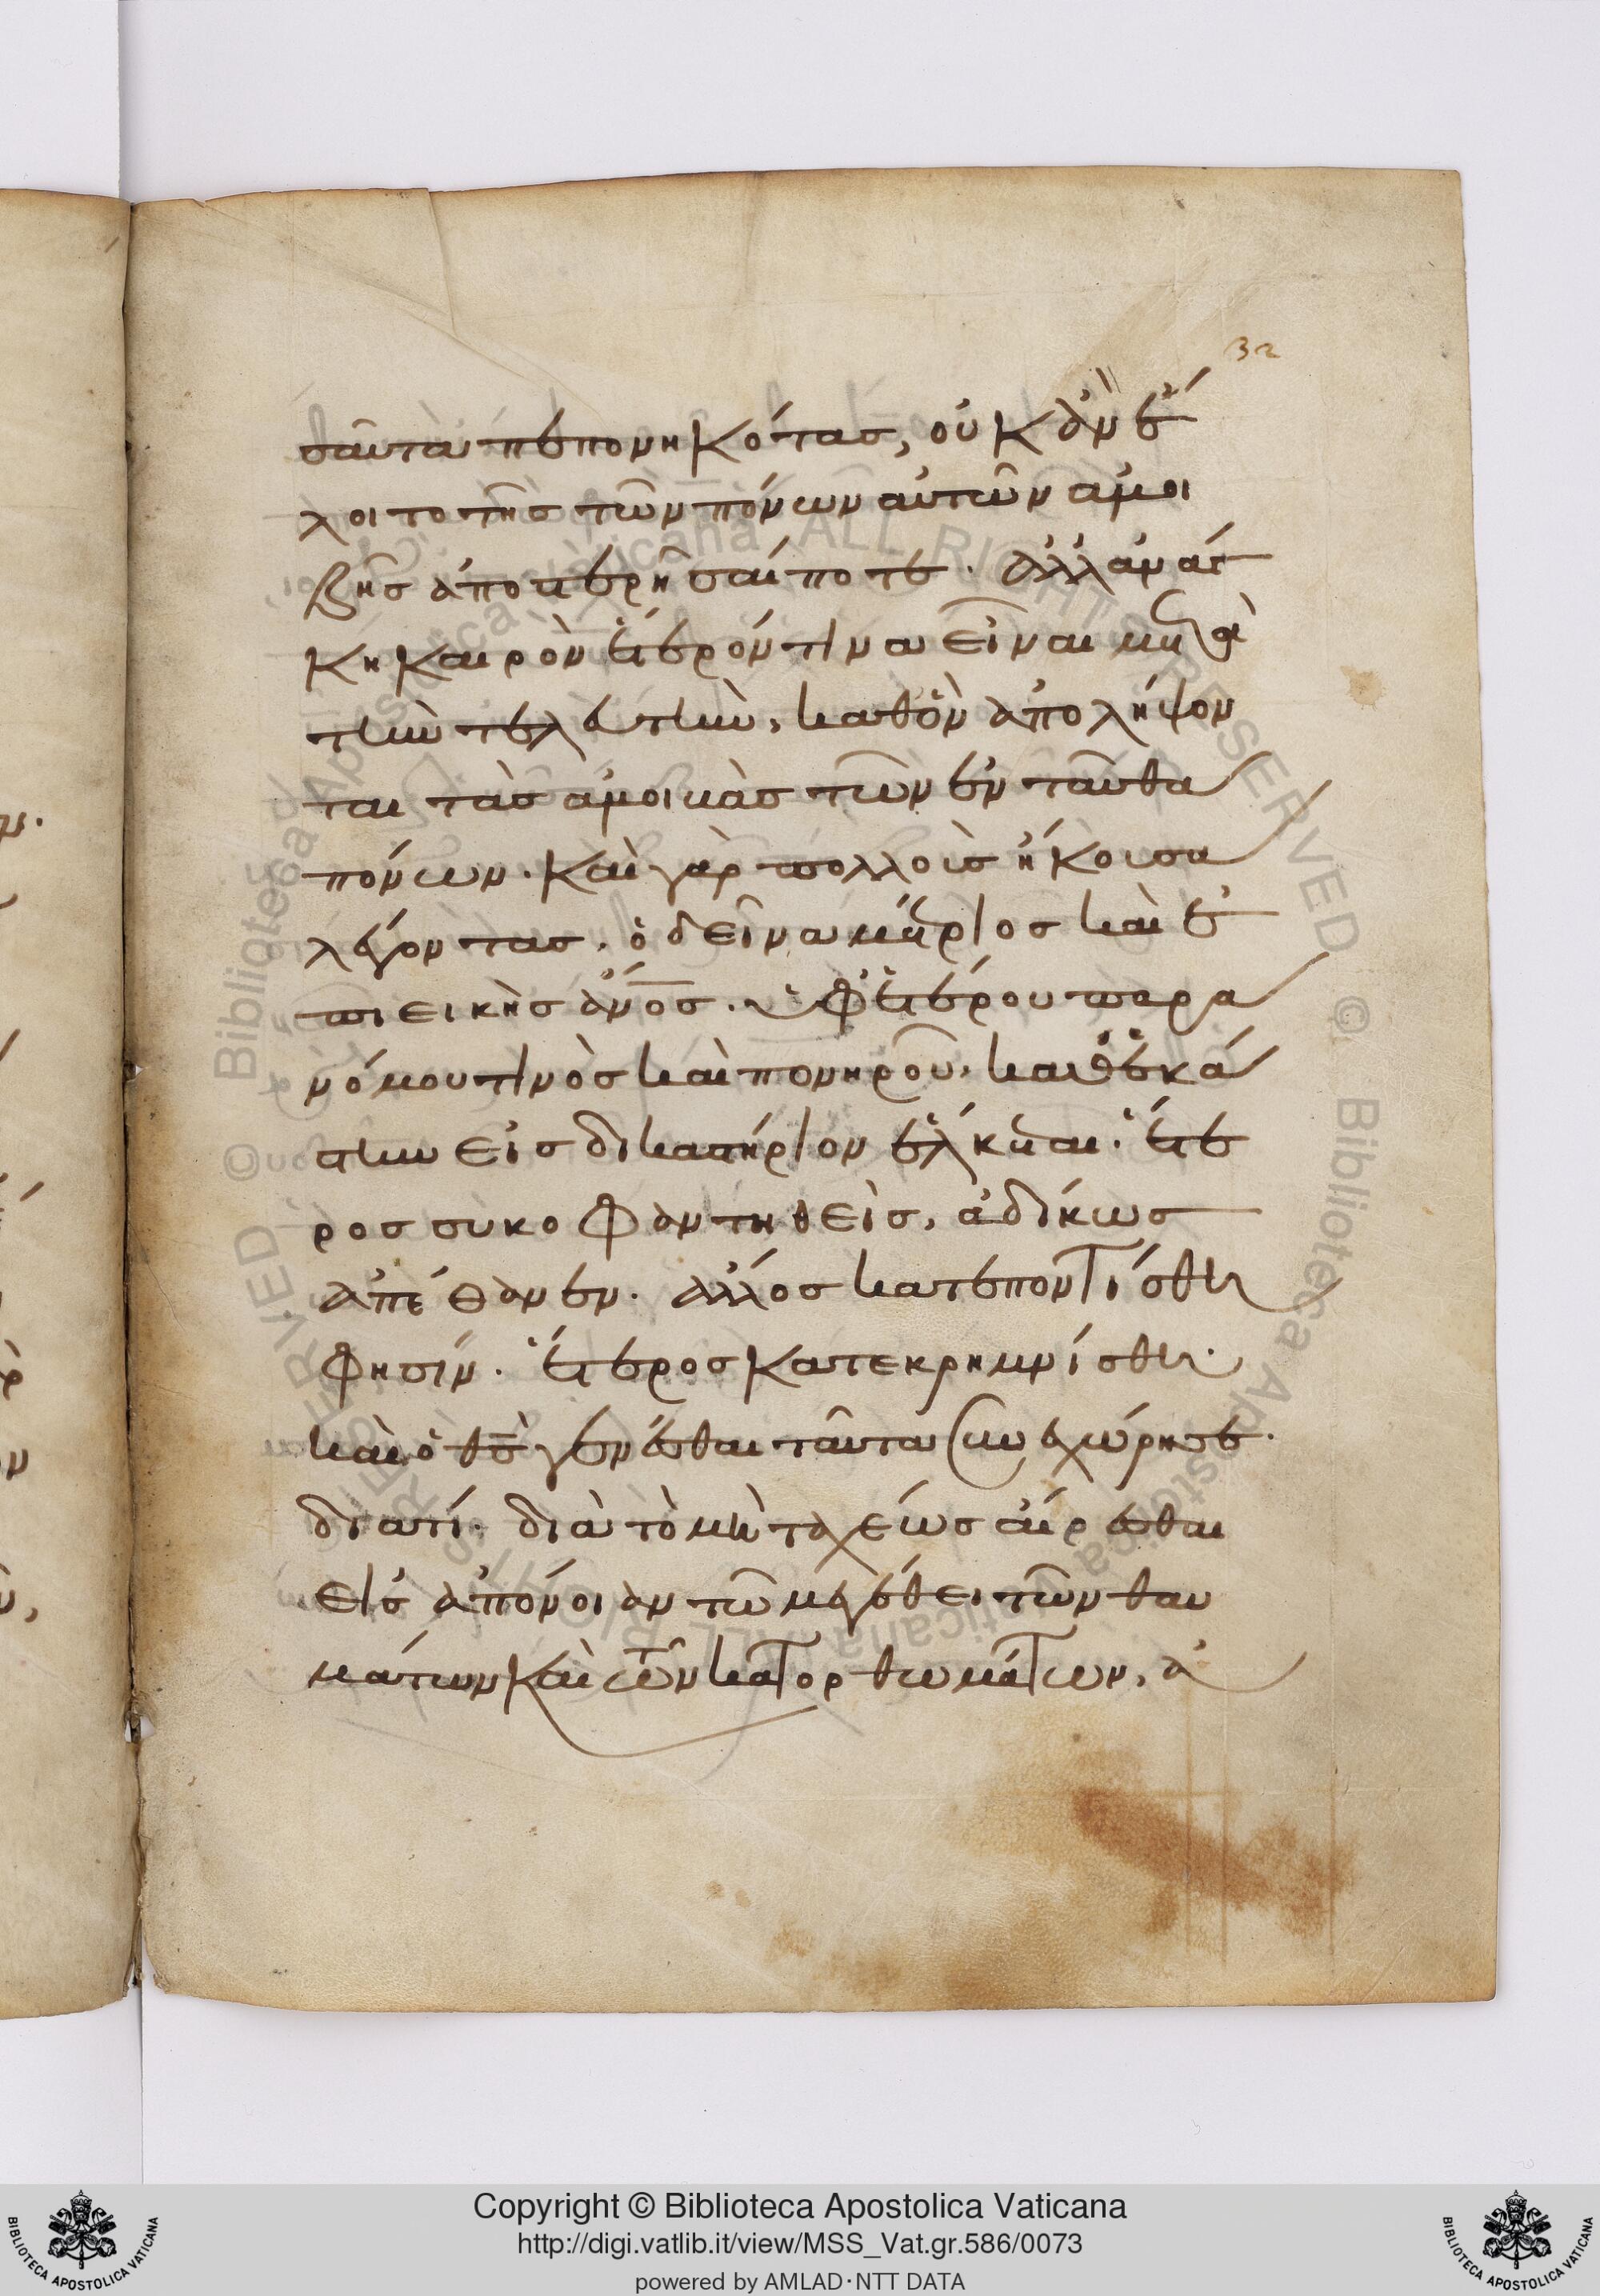 32
σαῦτα πεπονηκότας, οὐκ ἂν εἵ
λοιτο τῆς τῶν πόνων αὐτῶν ἀμοι
βῆς ἀποστερῆσαί ποτε. ἀλλ' ἀνάγ
κη καιρὸν ἕτερόν τινα εἶναι μετὰ
τὴν τελευτὴν, καθ' ὃν ἀπολήψον
ται τὰς ἀμοιβὰς τῶν ἐνταῦθα
πόνων. καὶ γὰρ πολλοὺς ἤκουσα
λέγοντας. ὁ δεῖνα μέτριος καὶ ἐ
πιεικὴς ἄνος. ὑφ' ἑτέρου παρα
νόμου τινὸς καὶ πονηροῦ, καθ' ἑκά
στην εἰς δικαστήριον ἕλκεται. ἕτε
ρος συκοφαντηθεὶς, ἀδίκως
ἀπέθανεν. ἄλλος κατεποντίσθη
φησίν. ἕτερος κατεκρημνίσθη.
καὶ ὁ θς γενέσθαι ταῦτα συνεχώρησε.
διατί. διὰ τὸ μὴ ταχέως αἴρεσθαι
εἰς ἀπόνοιαν τῶ μεγέθει τῶν θαυ
μάτων καὶ τῶν κατορθωμάτων, ἀ
Copyright © Biblioteca Apostolica Vaticana
http://digi.vatlib.it/view/MSS_Vat.gr.586/0073
powered by AMLAD·NTT DATA
BIBLIOTECA APOSTOLICA VATICANA
BIBLIOTECA APOSTOLICA VATICANA